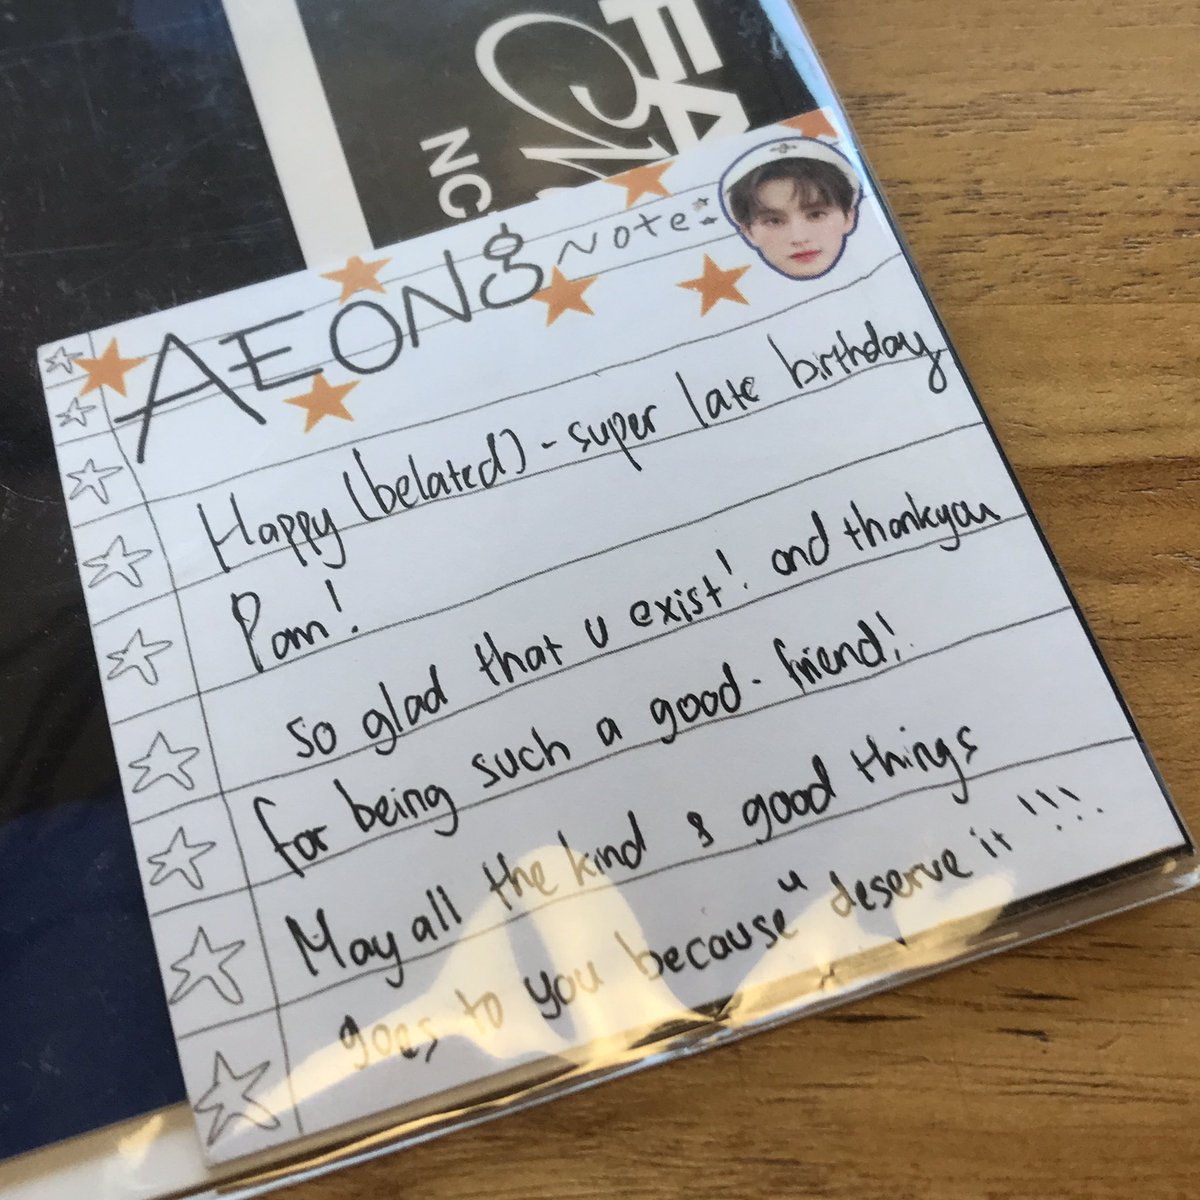 NC
AEONG NOTE:
Happy (belated) - super late birthday
Pam!
so glad that u exist! and thankyou
for being such a good friend!
May all the kind & good things
goes to you because u deserve it !!!